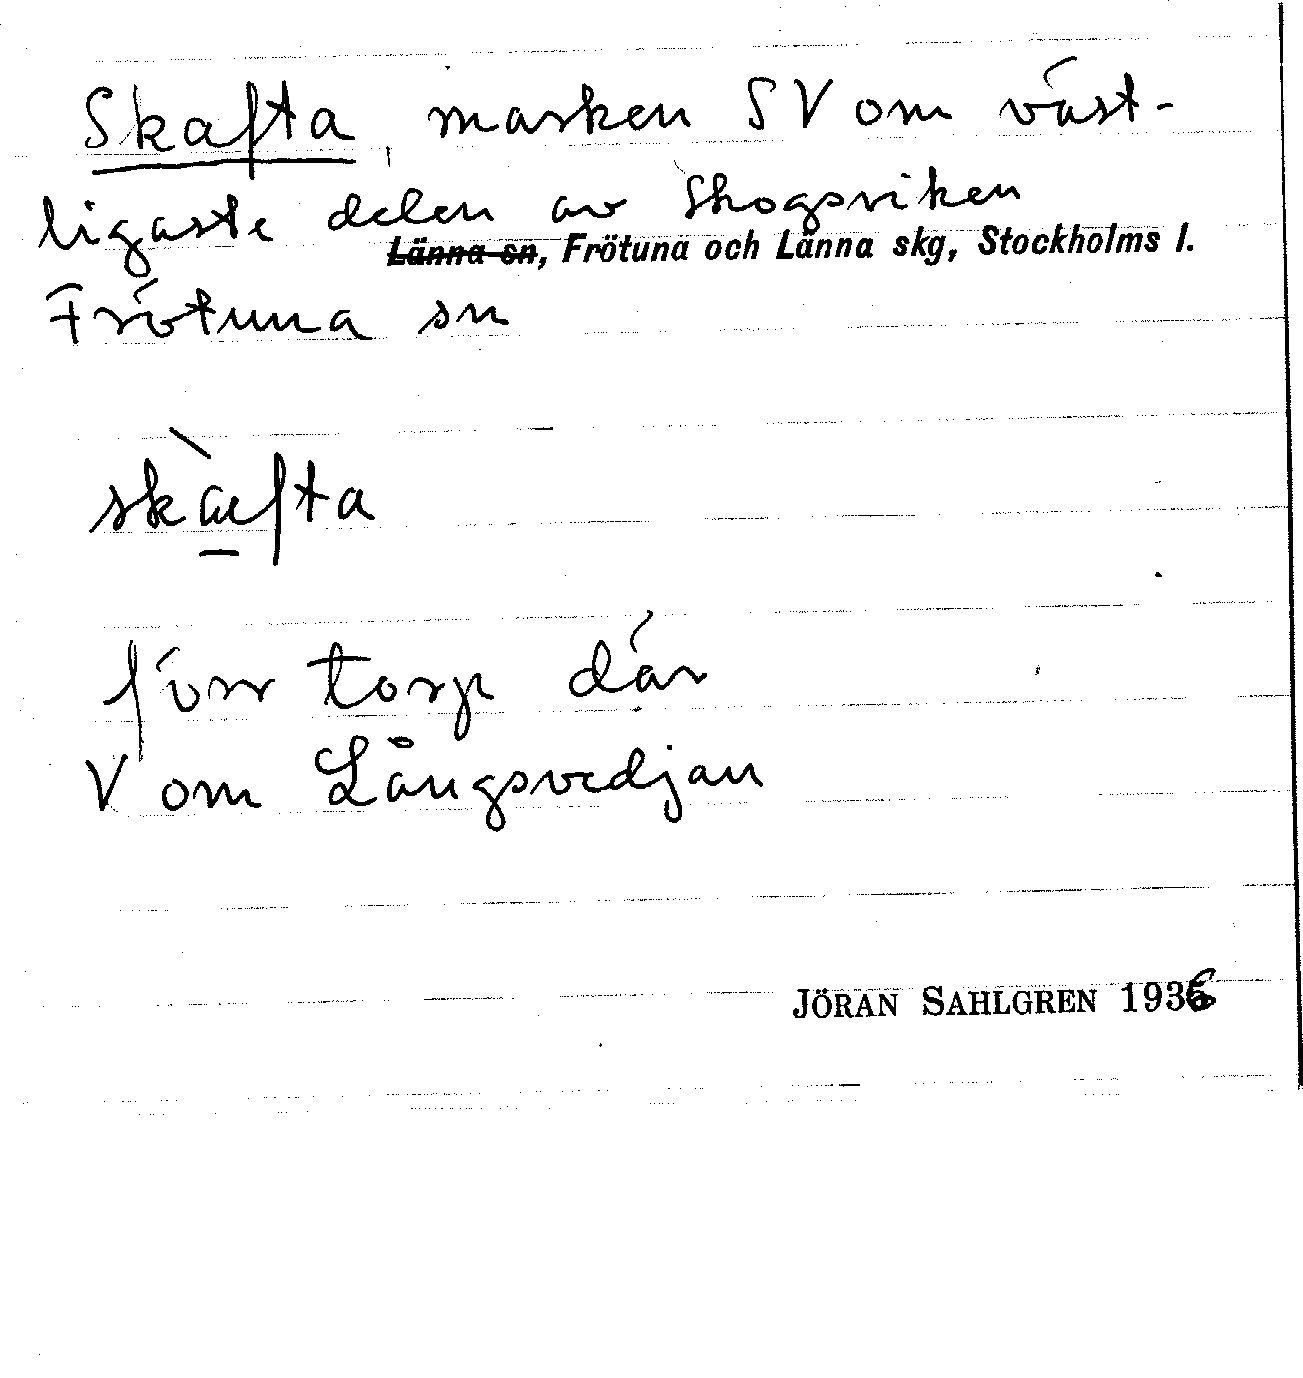 Skafta, marken SV om väst-
ligaste delen av Skogsviken
Länna sn, Frötuna och Länna skg, Stockholms l.
Frötuna sn
skæ̀fta
förr torp där
V om Långsvedjan
JÖRAN SAHLGREN 1936